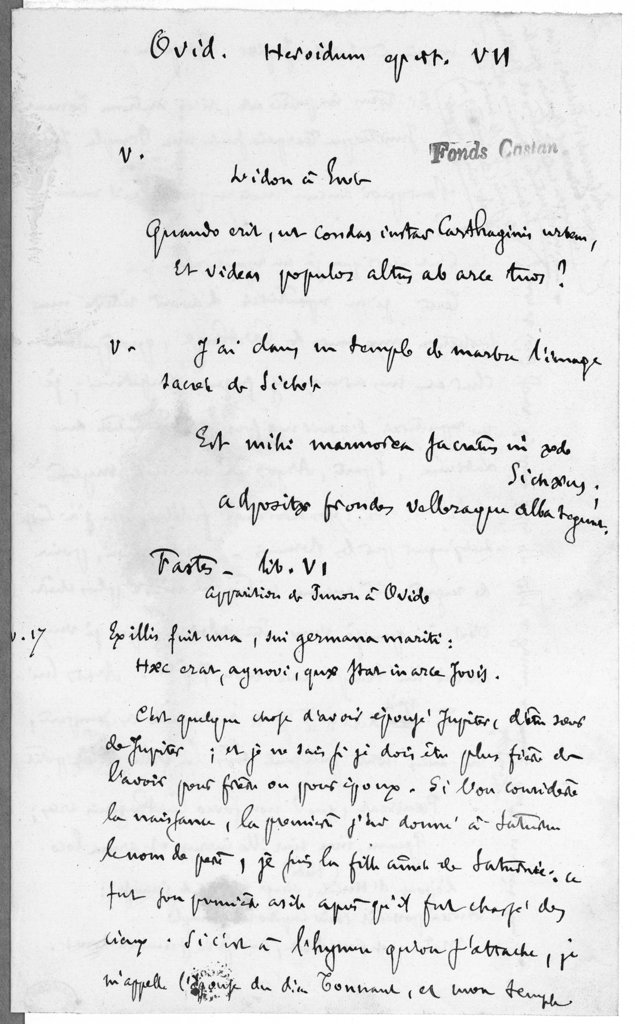 Ovid. Heroidum epist. VII
Fonds Castan
v.
Didon à Enée
Quando erit, ut condas instar Carthaginis urbem,
Et videas populos altus ab arce tuos?
v. J'ai dans un temple de marbre l'image
sacrée de Sichée
Est mihi marmorea sacratus in æde
Sichæus;
adpositæ frondes velleraque alba tegunt.
Fastes – lib. VI
apparition de Junon à Ovide
v. 17 Ex illis fuit una, sui germana mariti:
Hæc erat, agnovi, quæ stat in arce Jovis.
C'est quelque chose d'avoir épousé Jupiter, d'être sœur
de Jupiter; et je ne sais si je dois être plus fière de
l'avoir pour frère ou pour époux. Si l'on considère
la naissance, la première j'ai donné à Saturne
le nom de père, je suis la fille aînée de Saturne: ce
fut son premier asile après qu'il fut chassé des
cieux. Si c'est à l'hymen qu'on s'attache, je
m'appelle l'épouse du dieu Tonnant, et mon temple